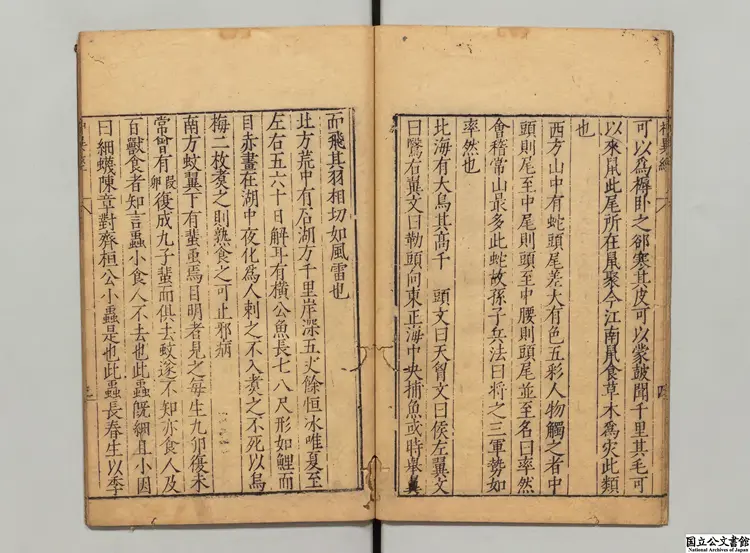 可以爲褥卧之郤寒其皮可以蒙鼓聞千里其毛可
以來鼠此尾所在鼠聚今江南鼠食草木爲灾此類
也
西方山中有蛇頭尾差大有色五彩人物觸之者中
頭則尾至中尾則頭至中腰則頭尾並至名曰率然
會稽常山最多此蛇故孫子兵法曰將之三軍勢如
率然也
北海有大鳥其髙千 頭文曰天胷文曰侯左翼文
曰鷖右翼文曰勒頭向東正海中央捕魚或時舉翼
而飛其羽相切如風雷也
北方荒中有石湖方千里岸深五丈餘恒冰唯夏至
左右五六十日解耳有橫公魚長七八尺形如鯉而
目赤晝在湖中夜化爲人刺之不入煑之不死以烏
梅二枚煑之則熟食之可止邪病
南方蚊翼下有小蜚蟲焉目明者見之每生九卵復未
常曾有㲉復成九子蜚而俱去蚊遂不知亦食人及
百獸食者知言蟲小食人不去也此蟲旣細且小因
曰細蠛陳章對齊桓公小蟲是也此蟲長春生以季
神異經
四
国立公文書館
National Archives of Japan